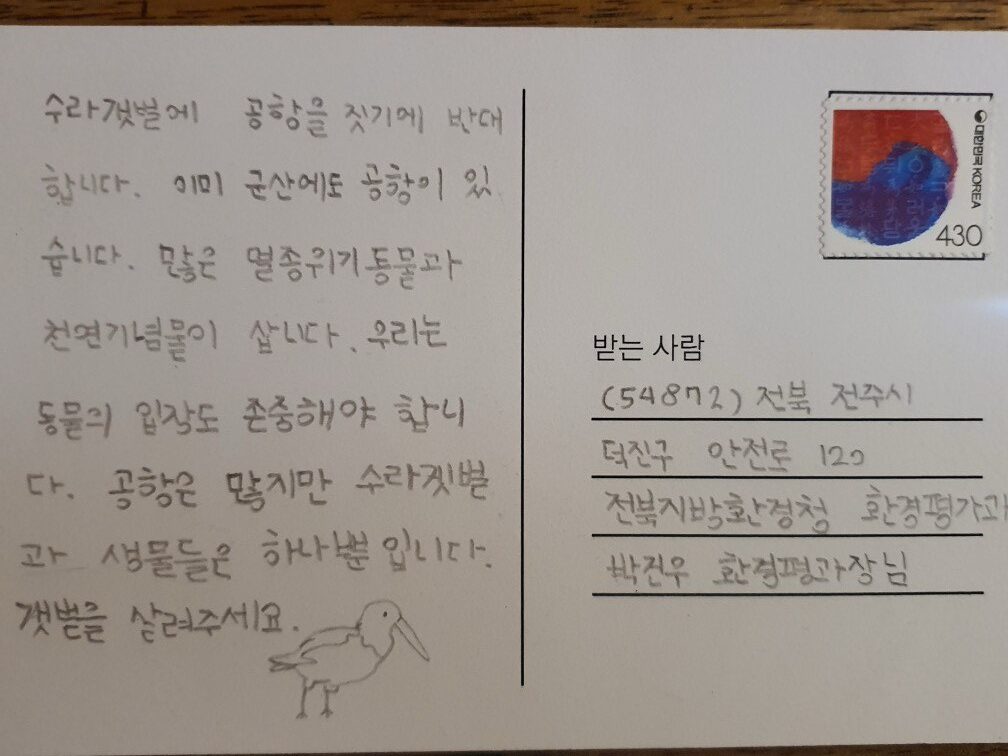 수라갯벌에 공항을 짓기에 반대
합니다. 이미 군산에도 공항이 있
습니다. 많은 멸종위기동물과
천연기념물이 삽니다. 우리는
동물의 입장도 존중해야 합니
다. 공항은 많지만 수라갯벌
과 생물들은 하나뿐입니다.
갯벌을 살려주세요.
대한민국 KOREA
430
받는 사람
(54872) 전북 전주시
덕진구 안전로 120
전북지방환경청 환경평가과
박진우 환경평과장님